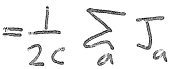 = \frac{1}{2c} \sum_{a} J_a